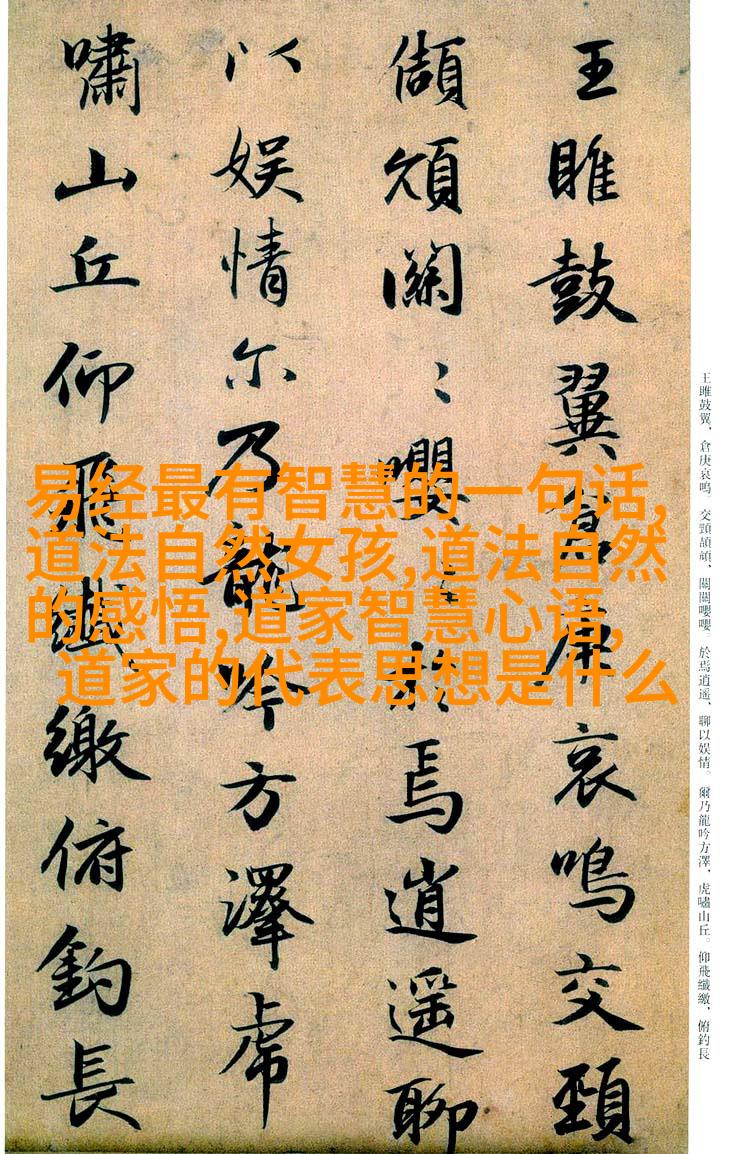 王雎鼓翼倉庚哀鳴交頸
頡頏關〻嚶〻於焉逍遥聊
以娱情尔乃龍吟方澤虎
嘯山丘仰飛纖繳俯釣長
易经最有智慧的一句话,
道法自然女孩,道法自然
的感悟,道家智慧心语,
道家的代表思想是什么
王雎鼓翼，倉庚哀鳴。交頸頡頏，關關嚶嚶。於焉逍遥，聊以娱情。爾乃龍吟方澤，虎嘯山丘。仰飛纖繳，俯釣長